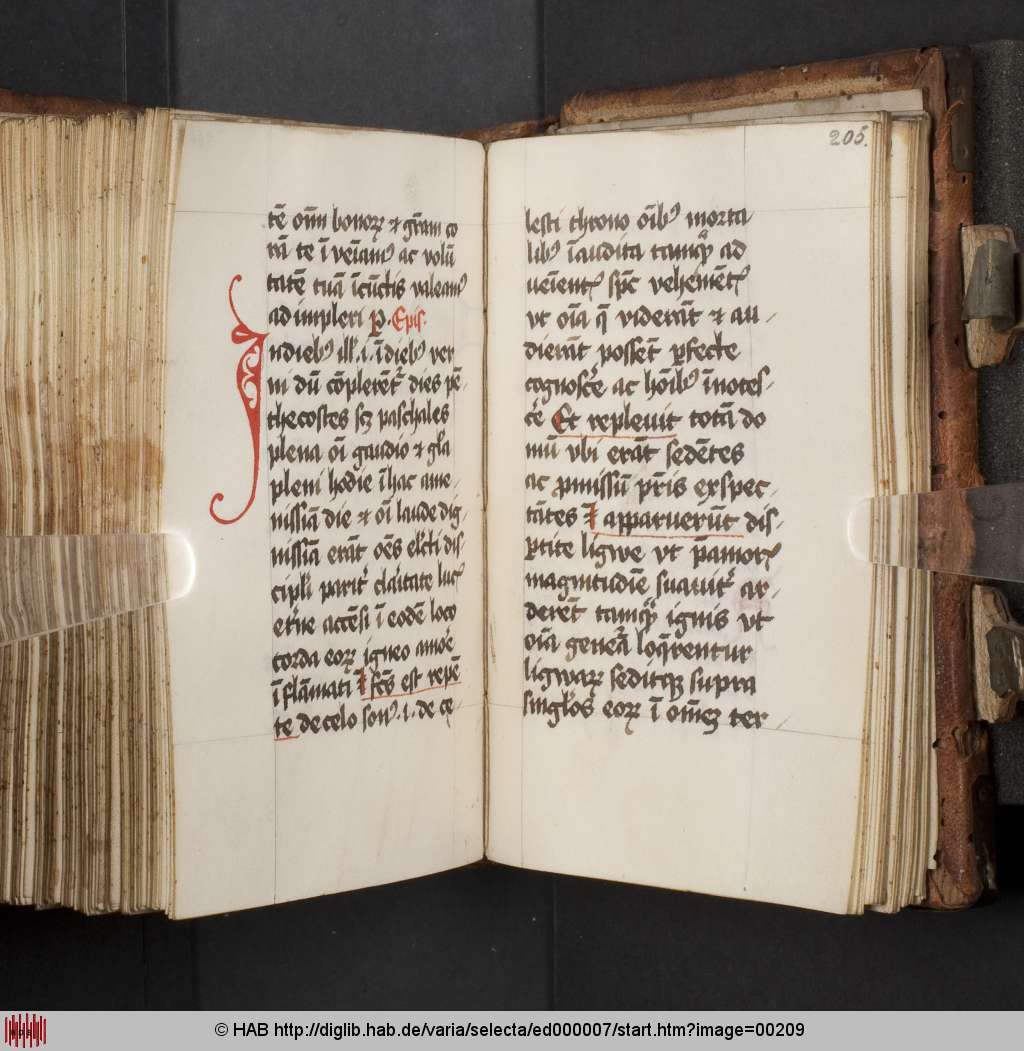 tē om̄ bonoꝝ ⁊ gr̄am co
rā te ī veīam᷒ ac volū
tatē tuā īcūctis valeam᷒
ad impleri ꝑ. Epis.
Indieb᷒ ill̄. i. ī dieb᷒ ver
ni dū cōplerēt᷑ dies pē-
thecostes sꝫ paschales
plena oī gaudio ⁊ gl̄a
pleni hodie ī hac ame-
nissīa die ⁊ oī laude dig-
nissīa erāt oēs el̄cti dis-
cipl̄i parit᷑ clar̄itate luc᷑
et᷑ne accēsi ī eodē loco
corda eoꝝ igneo amōe
īflām̄ati ⁊ fcūs est repē
te de celo son᷒. i. de ce-
205.
lesti throno oīb᷒ morta
lib᷒ īaudita tamqͣꝫ ad
ueīent᷑ sp̄c vehemēt᷑
vt oīa q̄ viderāt ⁊ au-
dierāt possēt ꝑfecte
cognosc̄e ac hoīb᷒ īnotes-
c̄e Et repleuit totā do
mū vbi erāt sedētes
ac ꝓmissū pr̄is exspec-
tātes ⁊ apparuerūt dis-
ꝑtite ligwe vt p̄ amor᷑
magnitudīe suauit᷑ ar-
derēt tamqͣꝫ ignis vt
oīa gen̄a loq̄rentur
ligwaꝝ seditqꝫ supra
singl̄os eoꝝ ī om̄eꝫ ter-
© HAB http://diglib.hab.de/varia/selecta/ed000007/start.htm?image=00209